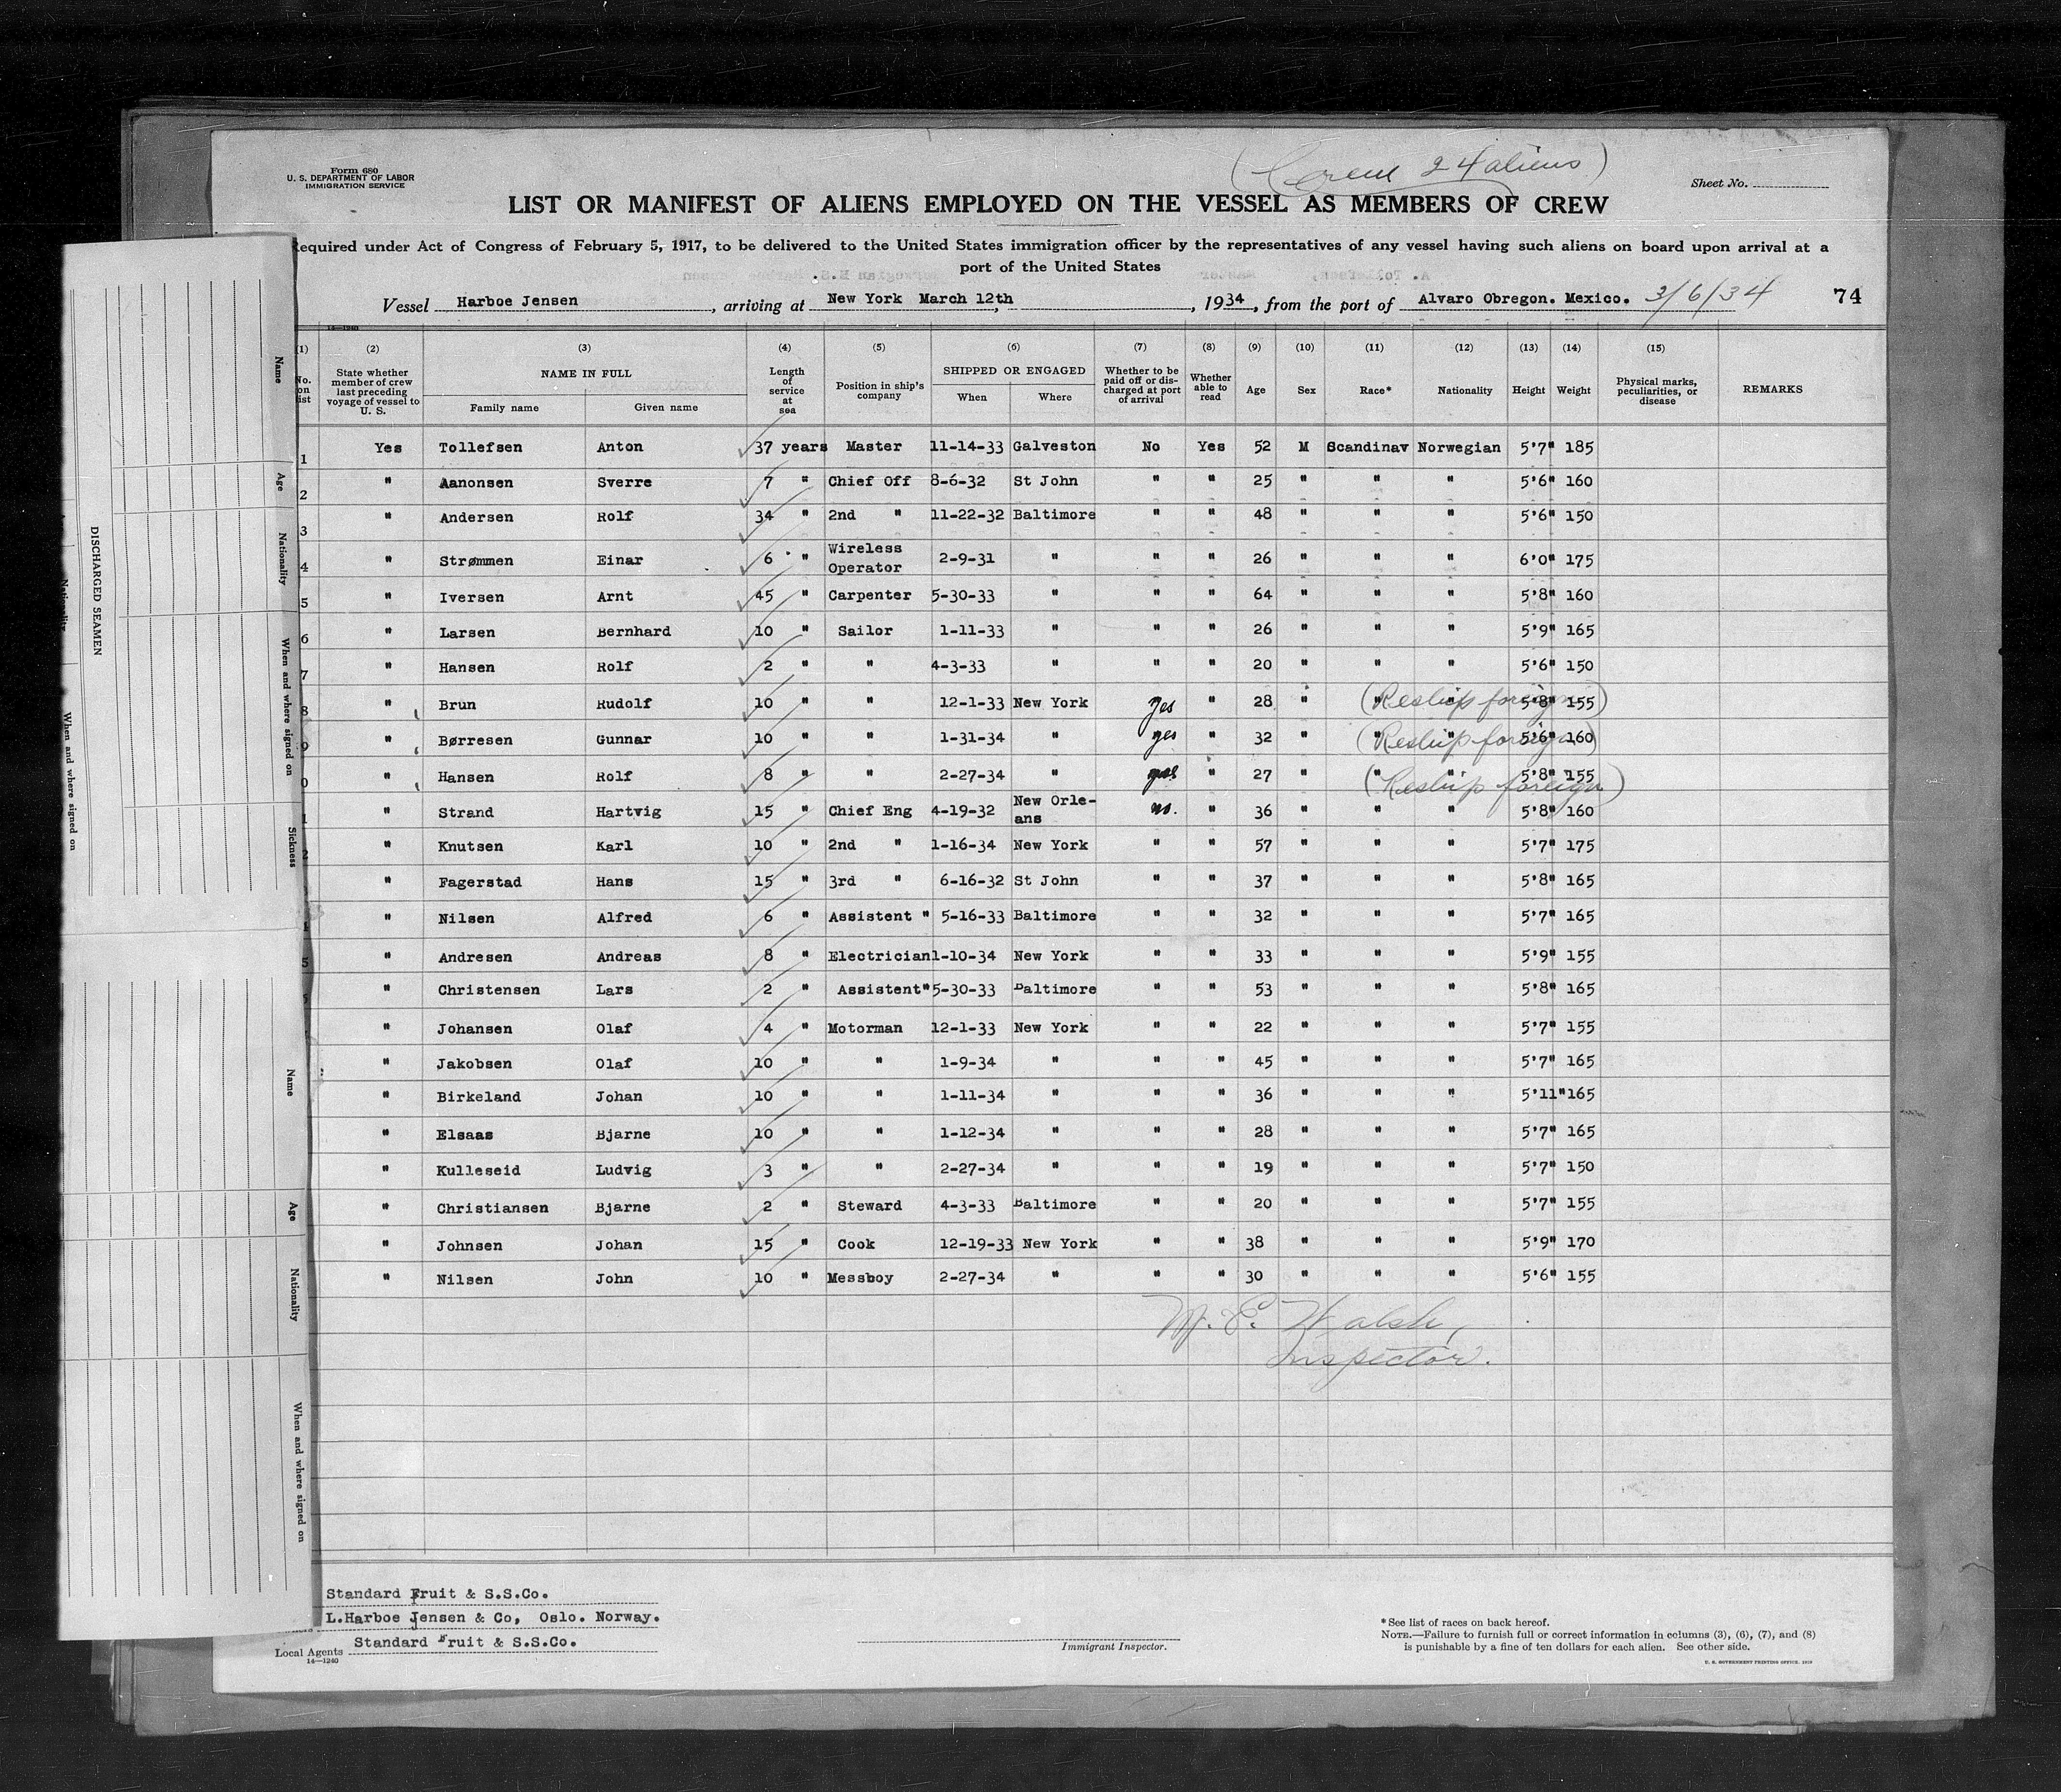 (Crew 24 aliens)
Form 680
U. S. DEPARTMENT OF LABOR
IMMIGRATION SERVICE
Sheet No.
LIST OR MANIFEST OF ALIENS EMPLOYED ON THE VESSEL AS MEMBERS OF CREW
equired under Act of Congress of February 5, 1917, to be delivered to the United States immigration officer by the representatives of any vessel having such aliens on board upon arrival at a
port of the United States
Vessel Harboe Jensen, arriving at New York March 12th, 1934, from the port of Alvaro Obregon. Mexico. 3/6/34 74
14—1240
(1) (2) (3) (4) (5) (6) (7) (8) (9) (10) (11) (12) (13) (14) (15)
No. on list State whether member of crew last preceding voyage of vessel to U. S. NAME IN FULL Family name Given name Length of service at sea Position in ship's company SHIPPED OR ENGAGED When Where Whether to be paid off or discharged at port of arrival Whether able to read Age Sex Race* Nationality Height Weight Physical marks, peculiarities, or disease REMARKS
1 Yes Tollefsen Anton 37 years Master 11-14-33 Galveston No Yes 52 M Scandinav Norwegian 5'7" 185
2 " Aanonsen Sverre 7 " Chief Off 8-6-32 St John " " 25 " " " 5'6" 160
3 " Andersen Rolf 34 " 2nd " 11-22-32 Baltimore " " 48 " " " 5'6" 150
4 " Strømmen Einar 6 " Wireless Operator 2-9-31 " " " 26 " " " 6'0" 175
5 " Iversen Arnt 45 " Carpenter 5-30-33 " " " 64 " " " 5'8" 160
6 " Larsen Bernhard 10 " Sailor 1-11-33 " " " 26 " " " 5'9" 165
7 " Hansen Rolf 2 " " 4-3-33 " " " 20 " " " 5'6" 150
8 " Brun Rudolf 10 " " 12-1-33 New York yes " 28 " " " 5'8" 155 (Reship foreign)
9 " Børresen Gunnar 10 " " 1-31-34 " yes " 32 " " " 5'6" 160 (Reship foreign)
0 " Hansen Rolf 8 " " 2-27-34 " yes " 27 " " " 5'8" 155 (Reship foreign)
1 " Strand Hartvig 15 " Chief Eng 4-19-32 New Orle-ans no. " 36 " " " 5'8" 160
2 " Knutsen Karl 10 " 2nd " 1-16-34 New York " " 57 " " " 5'7" 175
" Fagerstad Hans 15 " 3rd " 6-16-32 St John " " 37 " " " 5'8" 165
" Nilsen Alfred 6 " Assistent " 5-16-33 Baltimore " " 32 " " " 5'7" 165
5 " Andresen Andreas 8 " Electrician 1-10-34 New York " " 33 " " " 5'9" 155
" Christensen Lars 2 " Assistent" 5-30-33 Baltimore " " 53 " " " 5'8" 165
" Johansen Olaf 4 " Motorman 12-1-33 New York " " 22 " " " 5'7" 155
" Jakobsen Olaf 10 " " 1-9-34 " " " 45 " " " 5'7" 165
" Birkeland Johan 10 " " 1-11-34 " " " 36 " " " 5'11" 165
" Elsaas Bjarne 10 " " 1-12-34 " " " 28 " " " 5'7" 165
" Kulleseid Ludvig 3 " " 2-27-34 " " " 19 " " " 5'7" 150
" Christiansen Bjarne 2 " Steward 4-3-33 Baltimore " " 20 " " " 5'7" 155
" Johnsen Johan 15 " Cook 12-19-33 New York " " 38 " " " 5'9" 170
" Nilsen John 10 " Messboy 2-27-34 " " " 30 " " " 5'6" 155
W. E. Walsh,
Inspector.
Standard Fruit & S.S.Co.
L.Harboe Jensen & Co, Oslo. Norway.
Local Agents Standard Fruit & S.S.Co.
14—1240
Immigrant Inspector.
* See list of races on back hereof.
NOTE.—Failure to furnish full or correct information in columns (3), (6), (7), and (8)
is punishable by a fine of ten dollars for each alien. See other side.
U. S. GOVERNMENT PRINTING OFFICE
DISCHARGED SEAMEN
Name
Age
Nationality
When and where signed on
Sickness
Name
Age
Nationality
When and where signed on
Nationality
When and where signed on